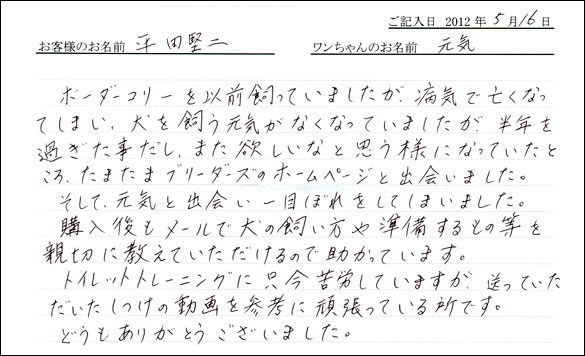 ご記入日 2012年5月16日
お客様のお名前 平田堅二 ワンちゃんのお名前 元気
ボーダーコリーを以前飼っていましたが、病気で亡くなっ
てしまい、犬を飼う元気がなくなっていましたが、半年を
過ぎた事だし、また欲しいなと思う様になっていたと
ころ、たまたまブリーダーズのホームページと出会いました。
そして、元気と出会い一目ぼれをしてしまいました。
購入後もメールで犬の飼い方や準備するもの等を
親切に教えていただけるので助かっています。
トイレットトレーニングに只今苦労していますが、送っていた
だいたしつけの動画を参考に頑張っている所です。
どうもありがとうございました。